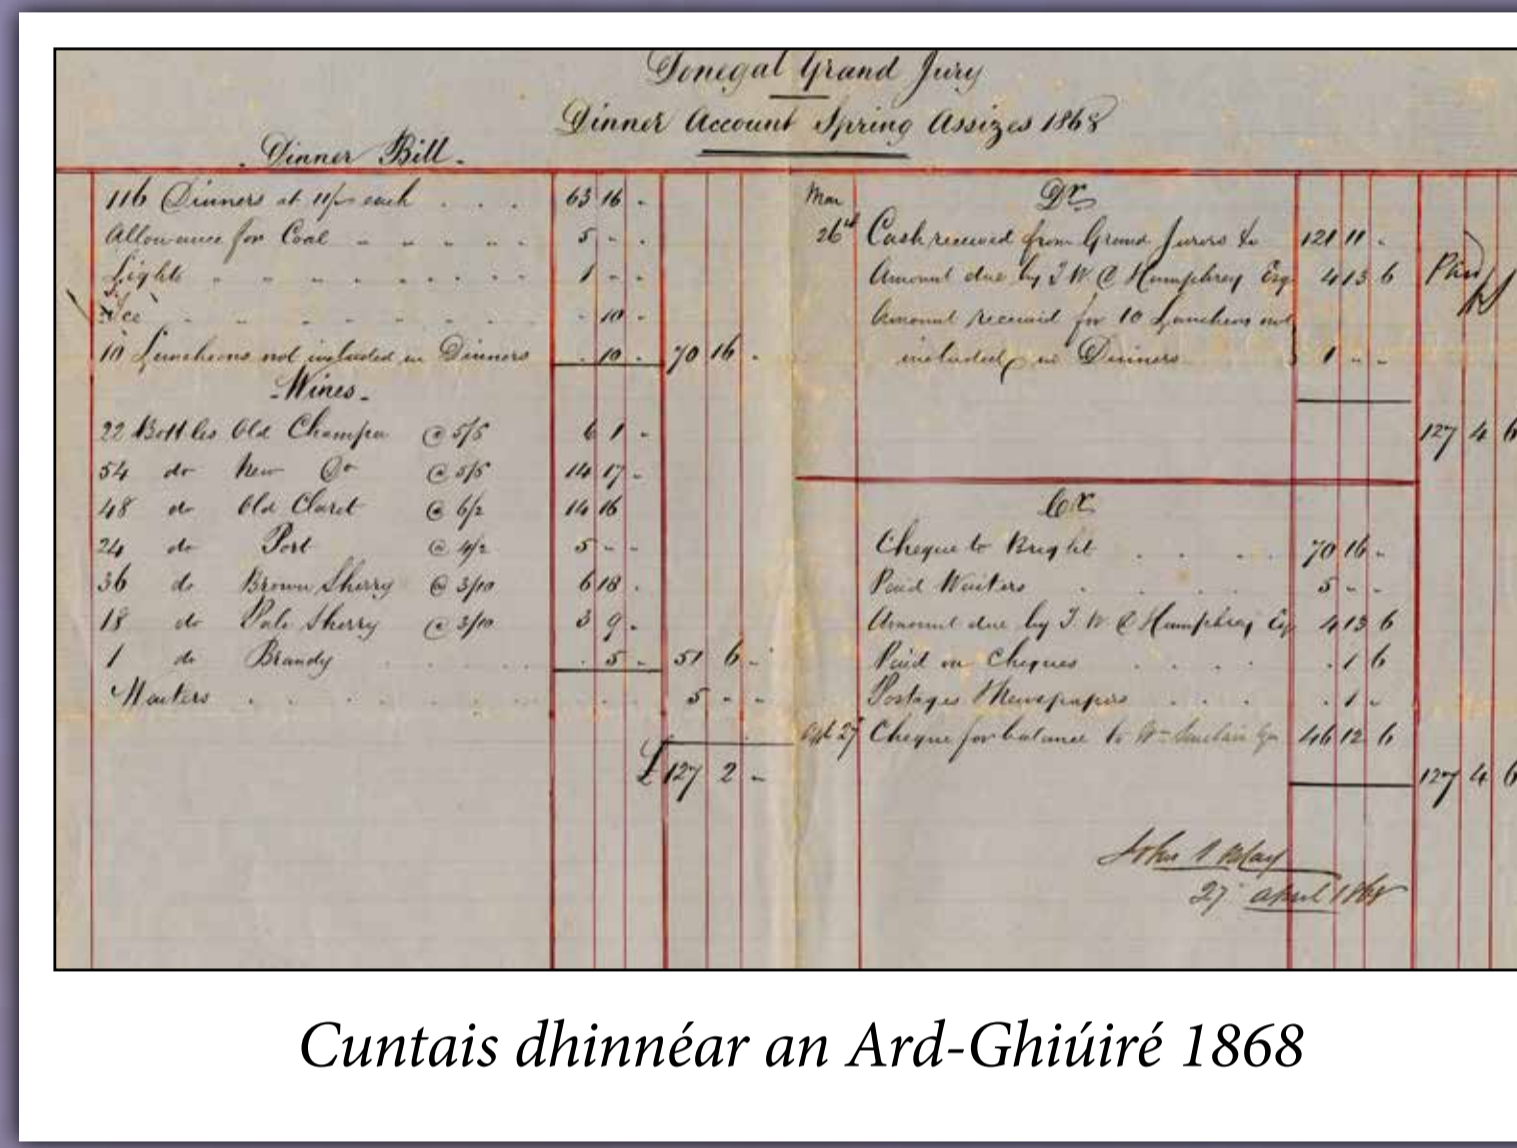 Donegal Grand Jury
Dinner Account Spring Assizes 1868
Dinner Bill
116 Dinners at 11/- each . . . 63 16 -
Allowance for Coal 5 - -
Lights 1 - -
Ice - 10 -
10 Luncheons not included in Dinners - 10 - 70 16 -
Wines
22 Bottles Old Champn @ 5/5 6 1 -
54 do New Do @ 5/5 14 17 -
48 do Old Claret @ 6/2 14 16
24 do Port @ 4/2 5 - -
36 do Brown Sherry @ 3/10 6 18 -
18 do Pale Sherry @ 3/10 3 9 -
1 do Brandy . 5 - 51 6 -
Waiters 5 - -
£127 2 -
Mar Dr
26th Cash received from Grand Jurors &c 121 11 -
Amount due by T W C Humphrey Esq 4 13 6 Paid
Amount received for 10 Luncheons not
included in Dinners 1 - -
127 4 6
Cr
Cheque to Bright 70 16 -
Paid Waiters 5 - -
Amount due by T W C Humphrey Esq 4 13 6
Paid on Cheques . 1 6
Postages & Newspapers . 1 -
Apl 27 Cheque for balance to Wm Sinclair Esq 46 12 6
127 4 6
John
27 April 1868
Cuntais dhinnéar an Ard-Ghiúiré 1868